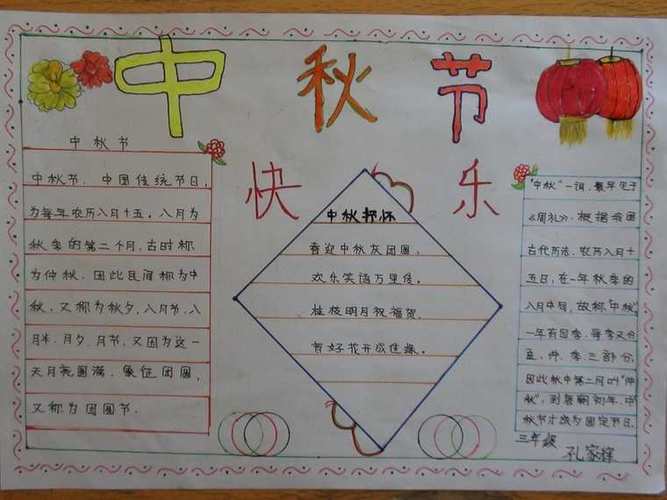 中秋节
快乐
中秋节
中秋节，中国传统节日，
为每年农历八月十五。八月为
秋季的第二个月，古时称
为仲秋，因此民间称为中
秋，又称为秋夕，八月节，八
月半，月夕，月节，又因为这一
天月亮圆满，象征团圆，
又称为团圆节．
中秋抒怀
喜迎中秋友团圆，
欢乐笑语万里传。
桂枝明月祝福贺，
有好花开成佳缘。
“中秋”一词，最早见于
《周礼》．根据我国
古代历法，农历八月十
五日，在一年秋季的
八月中旬，故称“中秋”
一年有四季，每季又分
孟，仲，季三部分，
因此秋中第二月叫“仲
秋”，到唐朝初年，中
秋节才成为固定节日．
三年级
孔家